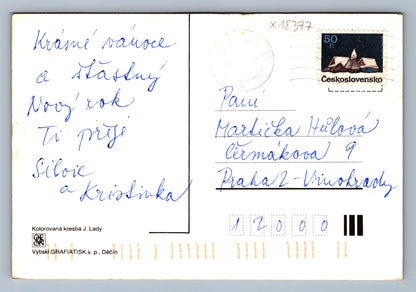 Krásné vánoce
a šťastný
Nový rok
Ti přeje
Silvie
a Kristinka
Kolorovaná kresba J. Lady
Vytiskl GRAFIATISK s. p., Děčín
x18377
50
h
Československo
Paní
Martička Hůlová
Čermákova 9
Praha 2 - Vinohrady
1 2 0 0 0